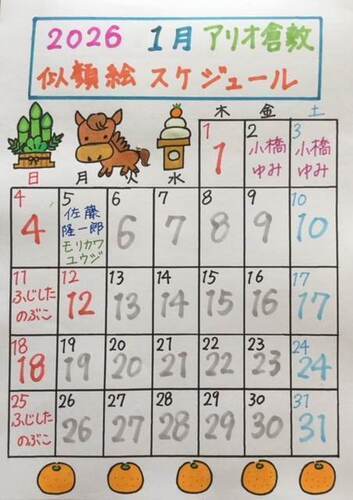 2026 1月 アリオ倉敷
似顔絵 スケジュール
木 金 土
1 2 3
1 小橋ゆみ 小橋ゆみ
日 月 火 水
4 5 6 7 8 9 10
4 佐藤隆一郎 モリカワユウジ 6 7 8 9 10
11 12 13 14 15 16 17
ふじしたのぶこ 12 13 14 15 16 17
18 19 20 21 22 23 24
18 19 20 21 22 23 24
25 26 27 28 29 30 31
ふじしたのぶこ 26 27 28 29 30 31